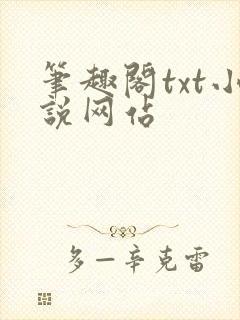 筆趣閣txt小
説网佔
多一辛克雷